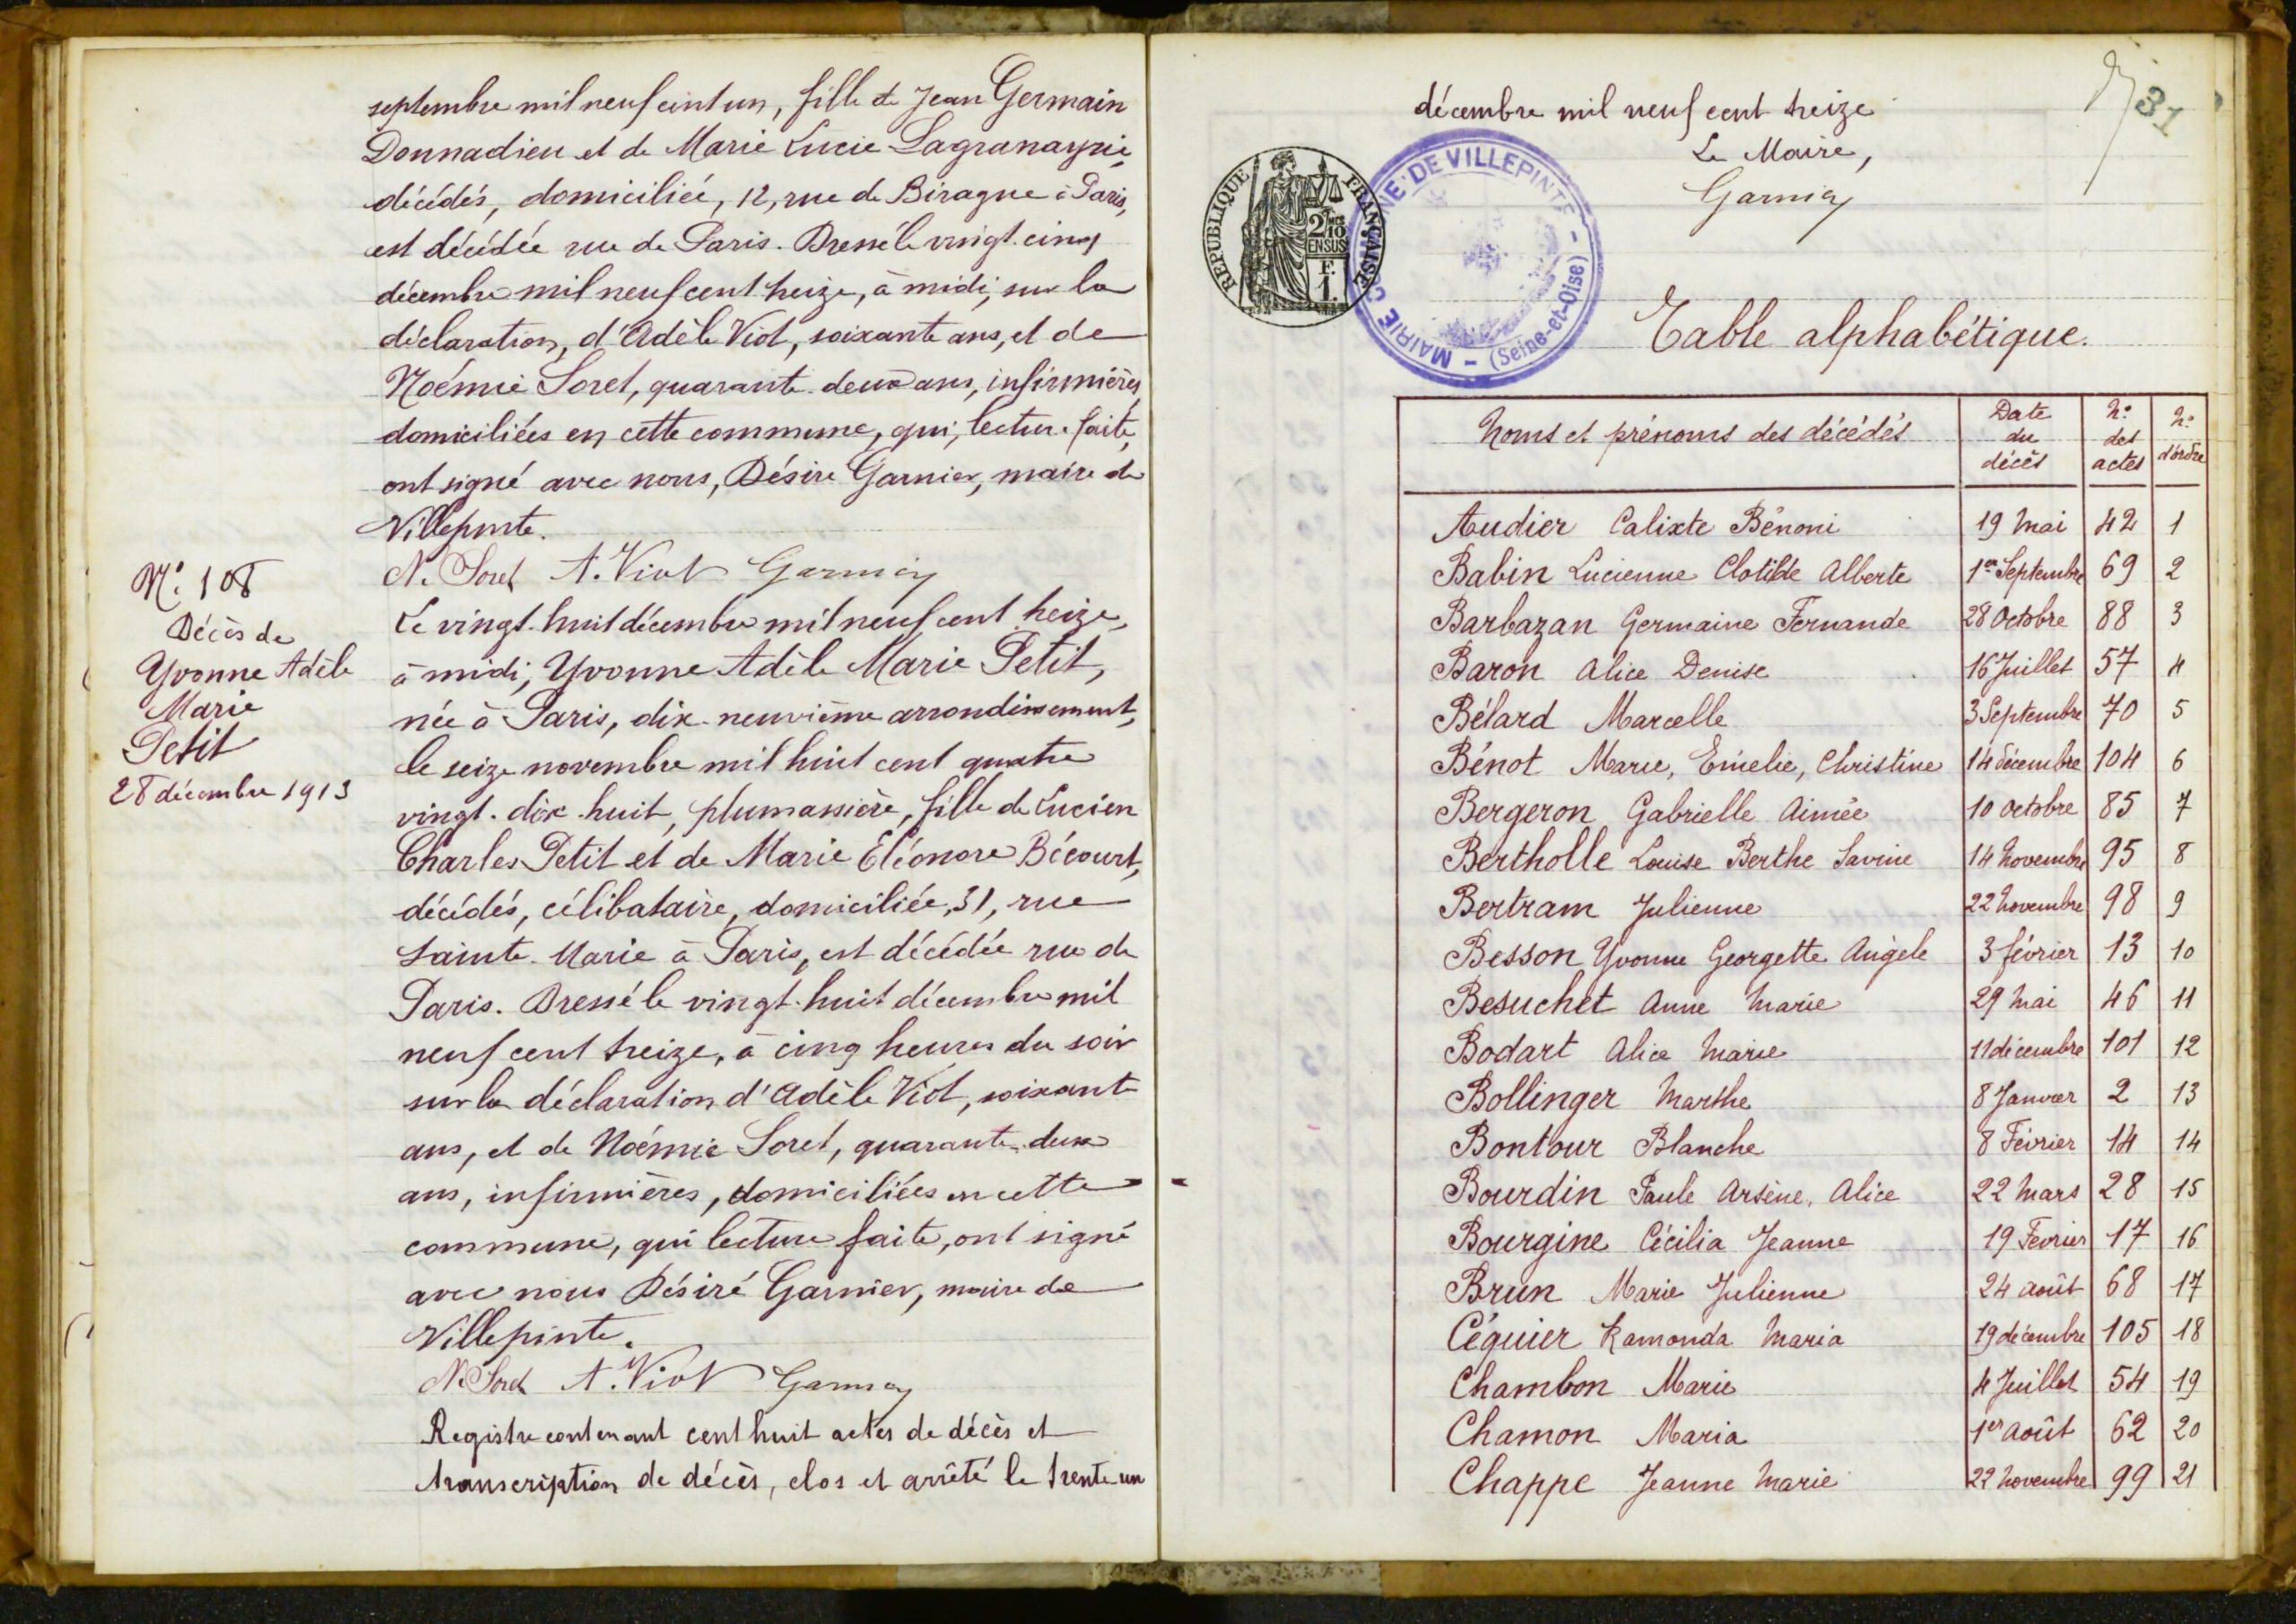 septembre mil neuf cent un, fille de Jean Germain
Donnadieu et de Marie Lucie
décédés, domiciliée, 12, rue de Birague à Paris,
est décédée rue de Paris. Dressé le vingt-cinq
décembre mil neuf cent treize, à midi, sur la
déclaration, d'Adèle Viot, soixante ans, et de
Noémie Soret, quarante-deux ans, infirmières,
domiciliées en cette commune, qui, lecture faite,
ont signé avec nous, Désiré Garnier, maire de
Villepinte.
N. Soret A. Viot Garnier
N° 108
Décès de
Yvonne Adèle
Marie
Petit
28 décembre 1913
Le vingt-huit décembre mil neuf cent treize,
à midi, Yvonne Adèle Marie Petit,
née à Paris, dix-neuvième arrondissement,
le seize novembre mil huit cent quatre
vingt-dix-huit, plumassière, fille de Lucien
Charles Petit et de Marie Eléonore Bécourt,
décédés, célibataire, domiciliée, 31, rue
Sainte-Marie à Paris, est décédée rue de
Paris. Dressé le vingt-huit décembre mil
neuf cent treize, à cinq heures du soir
sur la déclaration d'Adèle Viot, soixante
ans, et de Noémie Soret, quarante-deux
ans, infirmières, domiciliées en cette
commune, qui lecture faite, ont signé
avec nous Désiré Garnier, maire de
Villepinte.
N. Soret A. Viot Garnier
Registre contenant cent huit actes de décès et
transcription de décès, clos et arrêté le trente-un
31
décembre mil neuf cent treize
Le Maire,
Garnier
REPUBLIQUE FRANÇAISE
2/10 EN SUS
F. 1.
MAIRIE COMMUNE DE VILLEPINTE - (Seine-et-Oise) -
Table alphabétique.
Noms et prénoms des décédés Date du décès N° des actes N° d'ordre
Audier Calixte Bénoni 19 Mai 42 1
Babin Lucienne Clotilde Alberte 1er Septembre 69 2
Barbazan Germaine Fernande 28 Octobre 88 3
Baron Alice Denise 16 Juillet 57 4
Bélard Marcelle 3 Septembre 70 5
Bénot Marie, Emelie, Christine 14 décembre 104 6
Bergeron Gabrielle Aimée 10 octobre 85 7
Bertholle Louise Berthe Savine 14 Novembre 95 8
Bertram Julienne 22 Novembre 98 9
Besson Yvonne Georgette Angèle 3 février 13 10
Besuchet Anne Marie 29 Mai 46 11
Bodart Alice Marie 11 décembre 101 12
Bollinger Marthe 8 Janvier 2 13
Bontour Blanche 8 Février 14 14
Bourdin Paule Arsène, Alice 22 Mars 28 15
Bourgine Cécilia Jeanne 19 Fevrier 17 16
Brun Marie Julienne 24 août 68 17
Céquier Ramonda Maria 19 décembre 105 18
Chambon Marie 4 Juillet 54 19
Chamon Maria 1er Août 62 20
Chappe Jeanne Marie 22 Novembre 99 21